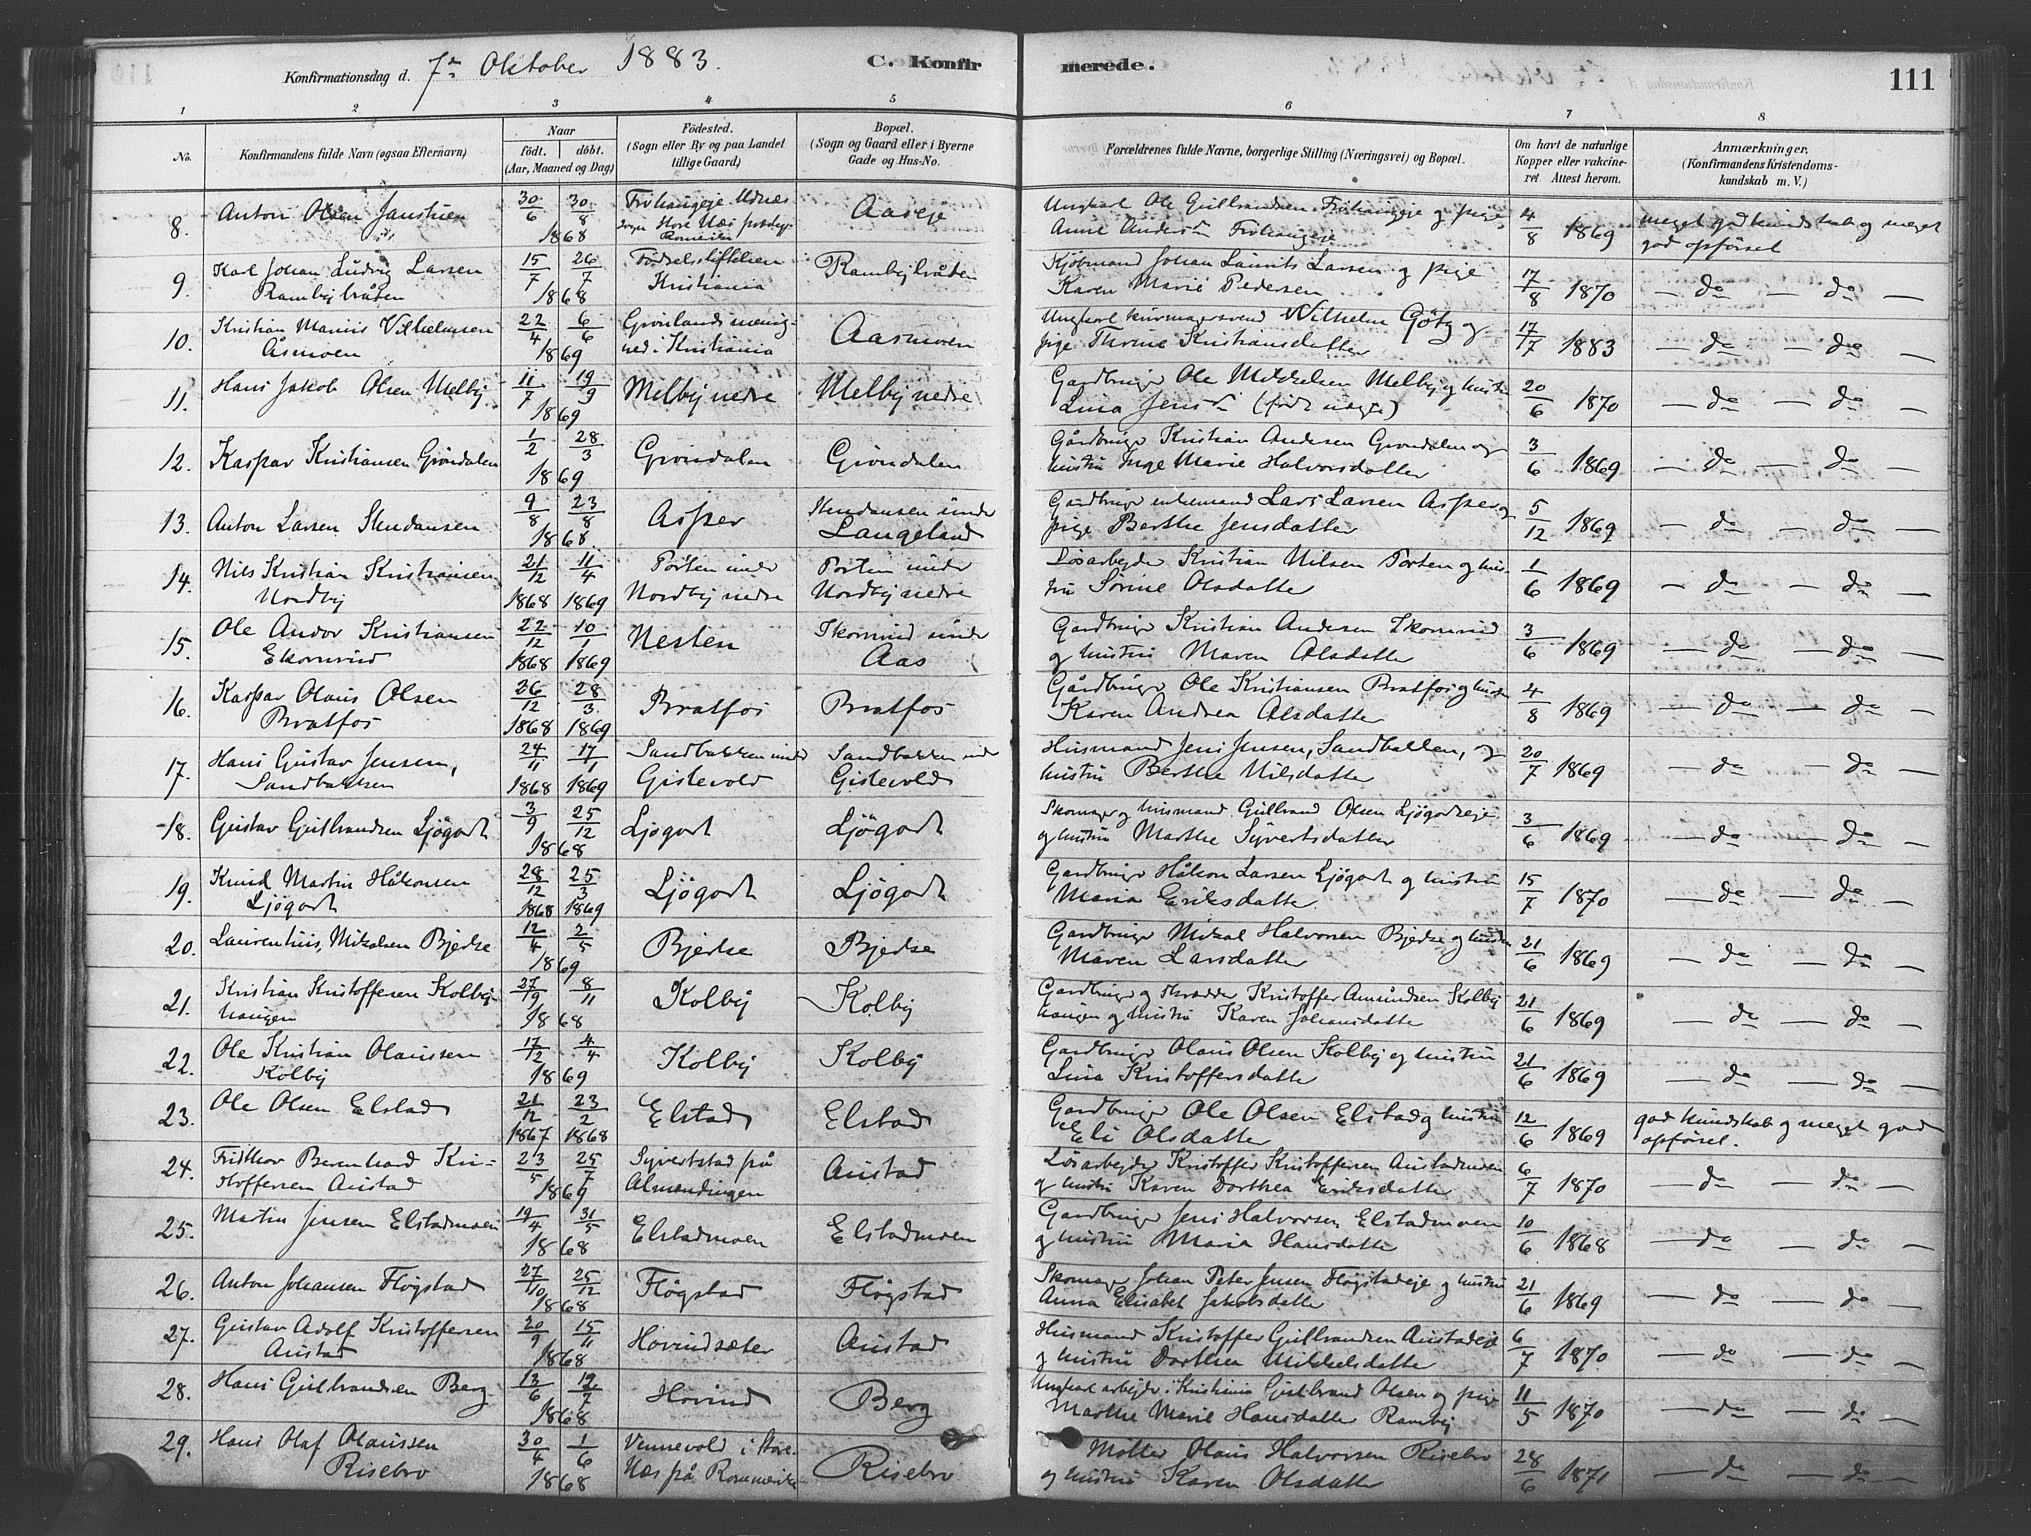 Konfirmationsdag d. 7de Oktober 1883. C. Konfirmerede. 111
1 2 3 4 5 6 7 8
No. Konfirmandens fulde Navn (ogsaa Efternavn) Naar født. døbt. (Aar, Maaned og Dag) Fødested. (Sogn eller By og paa Landet tillige Gaard) Bopæl. (Sogn og Gaard eller i Byerne Gade og Hus-No. Forældrenes fulde Navne, borgerlige Stilling (Næringsvei) og Bopæl. Om havt de naturlige Kopper eller vakcineret. Attest herom. Anmærkninger, (Konfirmandens Kristendomskundskab m. V.)
8. Anton Olsen 30/6 30/8 1868 Aaseje Ungkarl Ole Gulbrandsen og pige 4/8 1869 meget god kundskab og meget
Anne Anders d. god opførsel
9. Karl Johan Ludvig Larsen 15/7 26/7 1868 Fødselsstiftelsen Rambybråten Kjøbmand Johan Laurits Larsen og pige 17/8 1870 — do — do —
Rambybråten Kristiania Karen Marie Pedersen
10. Kristian Marius Vilhelmsen 22/4 6/6 1869 Grønlands menig- Aasmoen Ungkarl Wilhelm Götz og 17/7 1883 — do — do —
Åsmoen hed i Kristiania pige Thrine Kristiansdatter
11. Hans Jakob Olsen Melby 11/7 19/9 1869 Melby nedre Melby nedre Gardbruger Ole Mikkelsen Melby og hustru 20/6 1870 — do — do —
Lina Jens d.
12. Kaspar Kristiansen Gröndalen 1/2 28/3 1869 Gröndalen Gröndalen Gårdbruger Kristian Andersen Gröndalen og 3/6 1869 — do — do —
hustru Inge Marie Halvorsdatter
13. Anton Larsen Stendansen 9/8 23/8 1868 Asper Stendansen under Gardbruger enkemand Lars Larsen Asper og 5/12 1869 — do — do —
Langeland pige Berthe Jensdatter
14. Nils Kristian Kristiansen 21/12 1868 11/4 1869 Porten under Porten under Løsarbejder Kristian Nilsen Porten og hus- 1/6 1869 — do — do —
Nordby Nordby nedre Nordby nedre tru Sörine Olsdatter
15. Ole Andor Kristiansen 22/12 1868 10/1 1869 Nesten Ekornrud under Gardbruger Kristian Andersen Ekornrud 3/6 1869 — do — do —
Ekornrud Aas og hustru Maren Olsdatter
16. Kaspar Olaus Olsen 26/12 1868 28/3 1869 Bratfos Bratfos Gårdbruger Ole Kristiansen Bratfos og hustru 4/8 1869 — do — do —
Bratfos Karen Andrea Olsdatter
17. Hans Gustav Jensen, 24/11 1868 17/1 1869 Sandbakken under Sandbakken under Husmand Jens Jensen, Sandbakken, og 20/7 1869 — do — do —
Sandbakken Gislevold Gislevold hustru Berthe Nilsdatter
18. Gustav Gulbrandsen Ljögodt 3/9 25/12 1868 Ljögodt Ljögodt Skomager og husmand Gulbrand Olsen Ljögodteje 3/6 1869 — do — do —
og hustru Marthe Syvertsdatter
19. Knud Martin Håkonsen 28/12 1868 25/3 1869 Ljögodt Ljögodt Gardbruger Håkon Larsen Ljögodt og hustru 15/7 1870 — do — do —
Ljögodt Maria Eriksdatter
20. Laurentius Mikalsen Bjerke 12/4 2/5 1869 Bjerke Bjerke Gardbruger Mikal Halvorsen Bjerke og hustru 21/6 1869 — do — do —
Maren Larsdatter
21. Kristian Kristoffersen Kolby- 27/9 8/11 1868 Kolby Kolby Gardbruger og skrædder Kristoffer Amundsen Kolby 21/6 1869 — do — do —
haugen haugen og hustru Karen Johansdatter
22. Ole Kristian Olaussen 17/2 4/4 1869 Kolby Kolby Gardbruger Olaus Olsen Kolby og hustru 21/6 1869 — do — do —
Kolby Lina Kristoffersdatter
23. Ole Olsen Elstad 21/12 1867 23/2 1868 Elstad Elstad Gardbruger Ole Olsen Elstad og hustru 12/6 1869 god kundskab og meget god
Eli Olsdatter opførsel.
24. Fridthov Bernhard Kri- 23/5 25/7 1869 Syvertstad på Austad Løsarbejder Kristoffer Kristoffersen Austadmoen 6/7 1870 — do — do —
stoffersen Austad Almendingen og hustru Karen Dorthea Eriksdatter
25. Martin Jensen Elstadmoen 19/4 31/5 1868 Elstadmoen Elstadmoen Gardbruger Jens Halvorsen Elstadmoen 10/6 1868 — do — do —
og hustru Maria Hansdatter
26. Anton Johansen Flögstad 27/10 25/12 1868 Flögstad Flögstad Skomager Johan Peter Jensen Flögstadeje og hustru 21/6 1869 — do — do —
Anna Elisabet Jakobsdatter
27. Gustav Adolf Kristoffersen 20/9 15/11 1868 Hovindsæter Austad Husmand Kristoffer Gulbrandsen Austadeje 6/7 1870 — do — do —
Austad og hustru Dorthea Mikkelsdatter
28. Hans Gulbrandsen Berg 13/6 12/7 1868 Hovind Berg Ungkarl arbejder i Kristiania Gulbrand Olsen og pige 11/5 1870 — do — do —
Marthe Marie Hansdatter Ramby
29. Hans Olaf Olaussen 30/4 1/6 1868 Vennevold i Store- Risebro Møller Olaus Halvorsen Risebro 28/6 1871 — do — do —
Risebro Næs på Romerike og hustru Karen Olsdatter